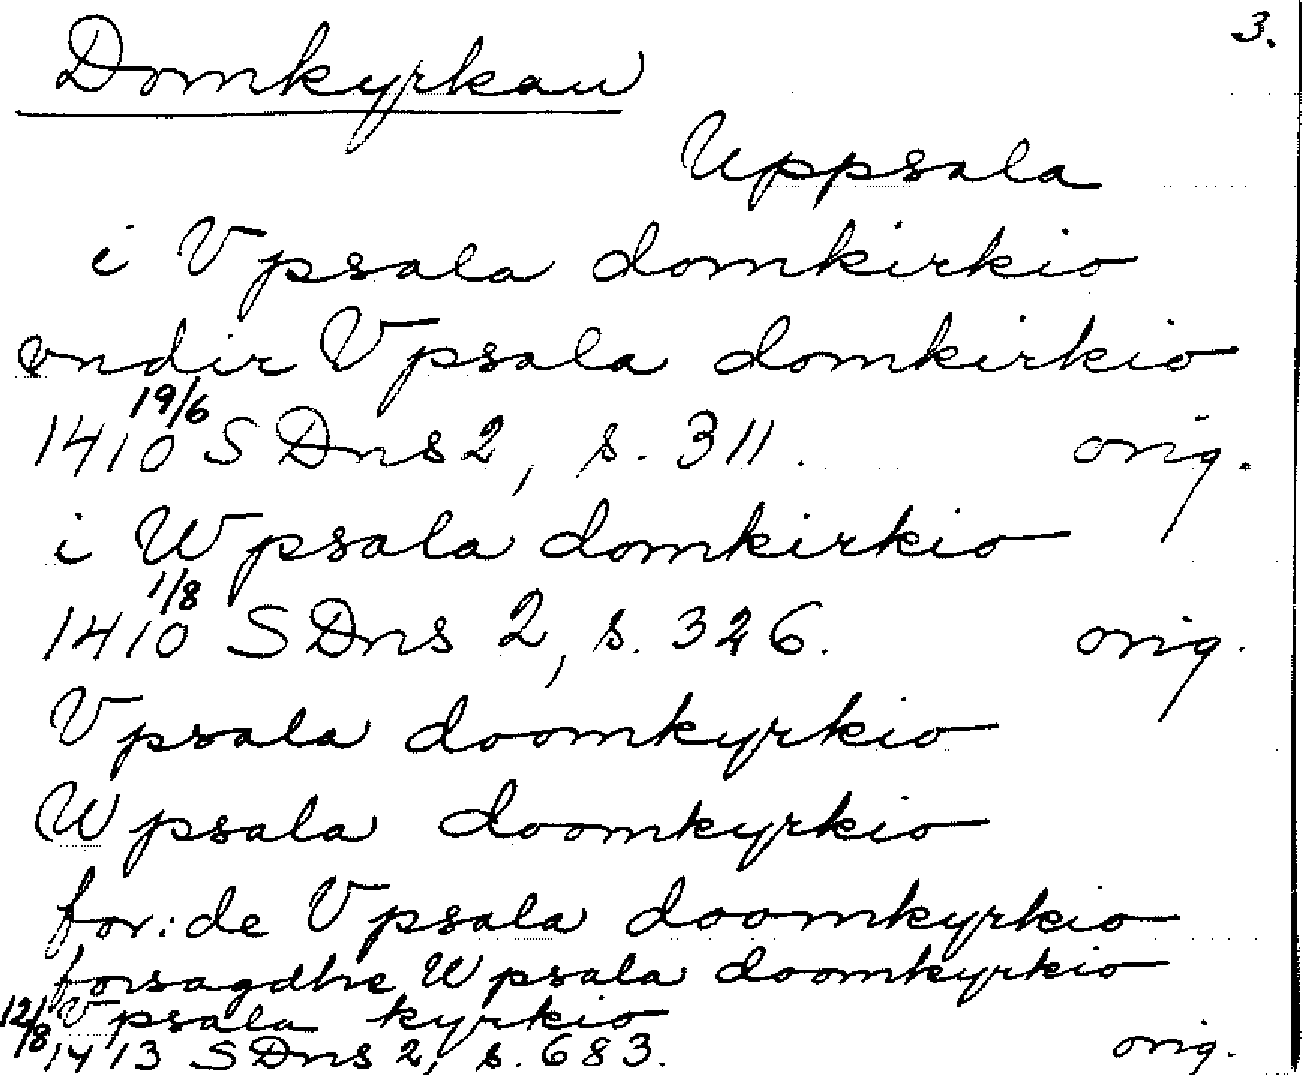 3.
Domkyrkan
Uppsala
i Vpsala domkirkio
vndir Vpsala domkirkio
19/6
1410 SDns 2, s. 311. orig.
i Wpsala domkirkio
1/8
1410 SDns 2, s. 326. orig.
Vpsala doomkyrkio
Wpsala doomkyrkio
for:de Vpsala doomkyrkio
forsagdhe Wpsala doomkyrkio
12/8 Vpsala kyrkio
1413 SDns 2, s. 683. orig.